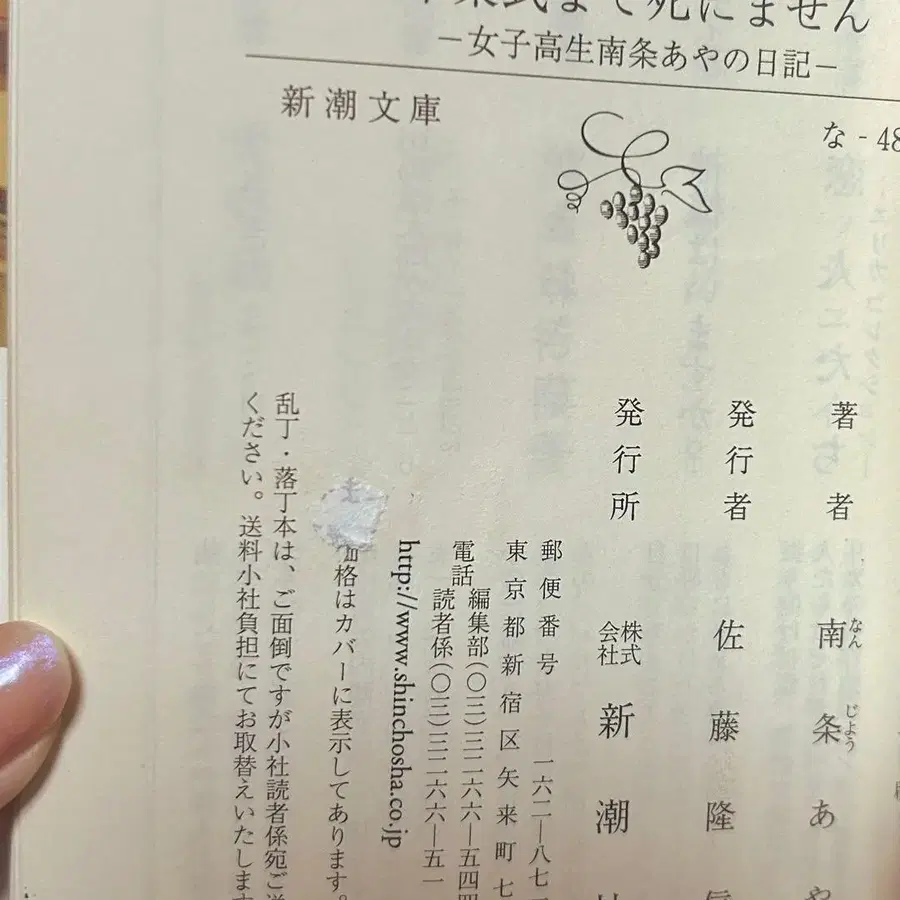 式まで死にません
－女子高生南条あやの日記－
新潮文庫
な - 48
著者 南条あや
なんじよう
発行者 佐藤隆
発行所 株式会社 新潮
郵便番号 一六二―八七一
東京都新宿区矢来町七
電話 編集部(〇三)三二六六―五四四
読者係(〇三)三二六六―五一
http://www.shinchosha.co.jp
価格はカバーに表示してあります。
乱丁・落丁本は、ご面倒ですが小社読者係宛ご送
ください。送料小社負担にてお取替えいたします